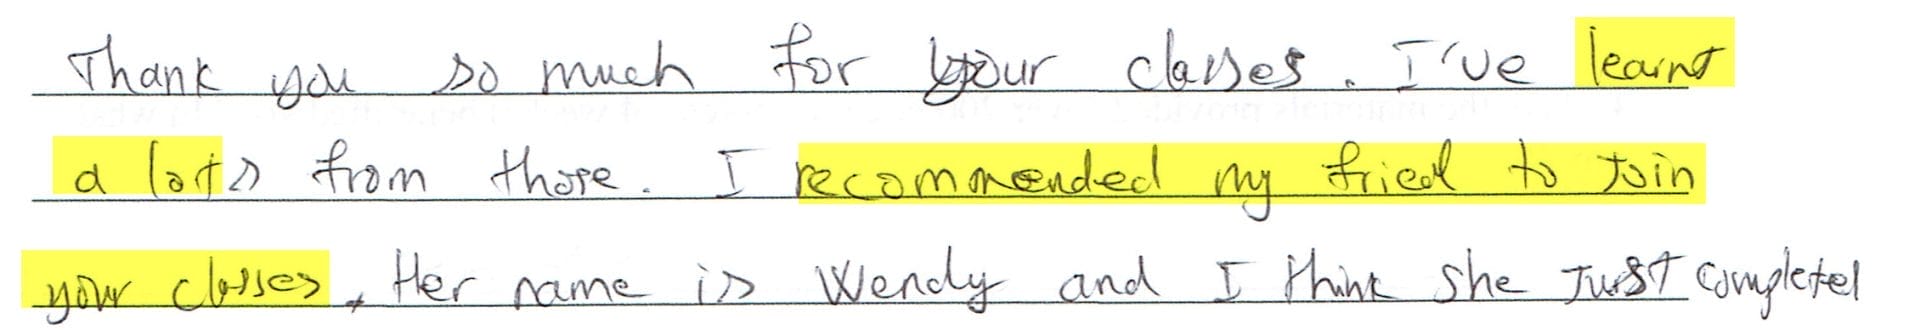 Thank you so much for your classes. I've learnt
a lots from those. I recommended my fried to Join
your classes. Her name is Wendy and I think she Just completed